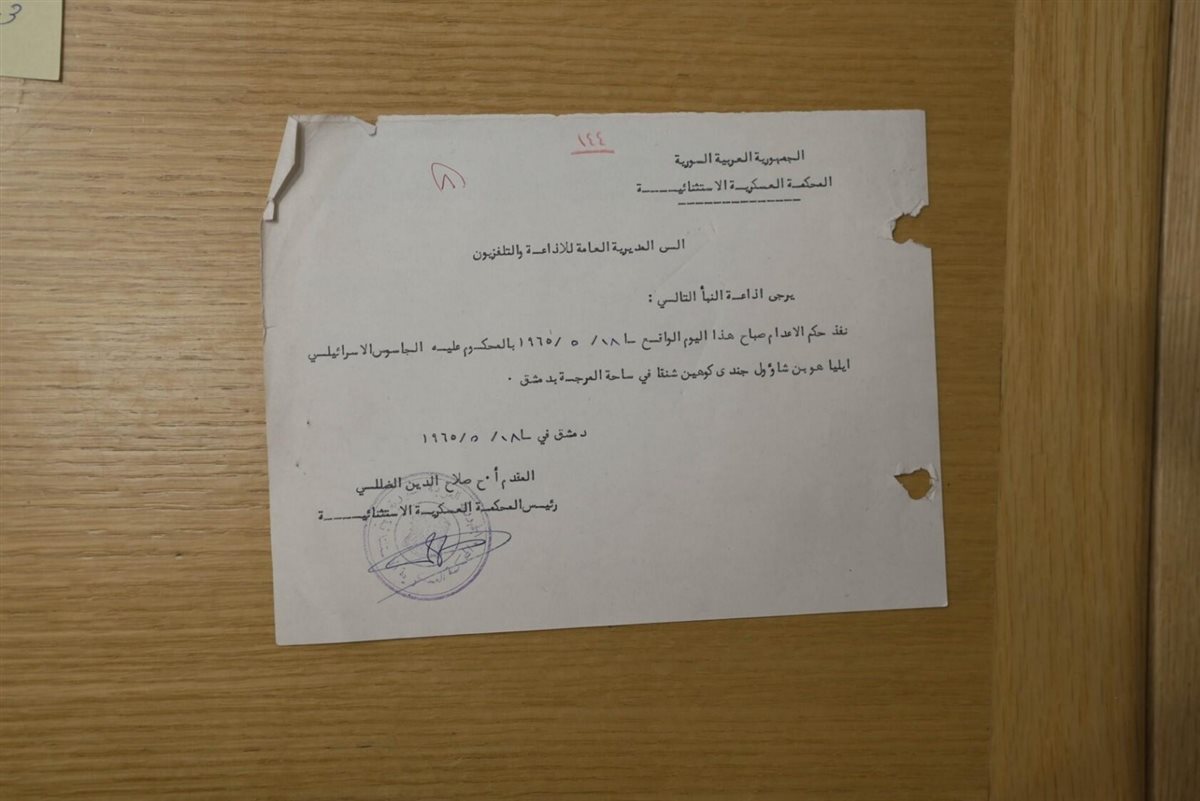 3
١٤٤
الجمهورية العربية السورية
المحكمة العسكرية الاستثنائيـــــة
الى المديرية العامة للاذاعـة والتلفزيون
يرجى اذاعـة النبأ التالـي :
نفذ حكم الاعدام صباح هذا اليوم الواقـع ١٨/ ٥ /١٩٦٥ بالمحكـوم عليـه الجاسوس الاسرائيلـي
ايليا هو بن شاؤول جندى كوهين شنقا في ساحة المرجـة بدمشق .
دمشق في ١٨/ ٥ /١٩٦٥
المقدم أ.ح صلاح الدين الضللـي
رئيـس المحكمـة العسكريـة الاستثنائيـــــة